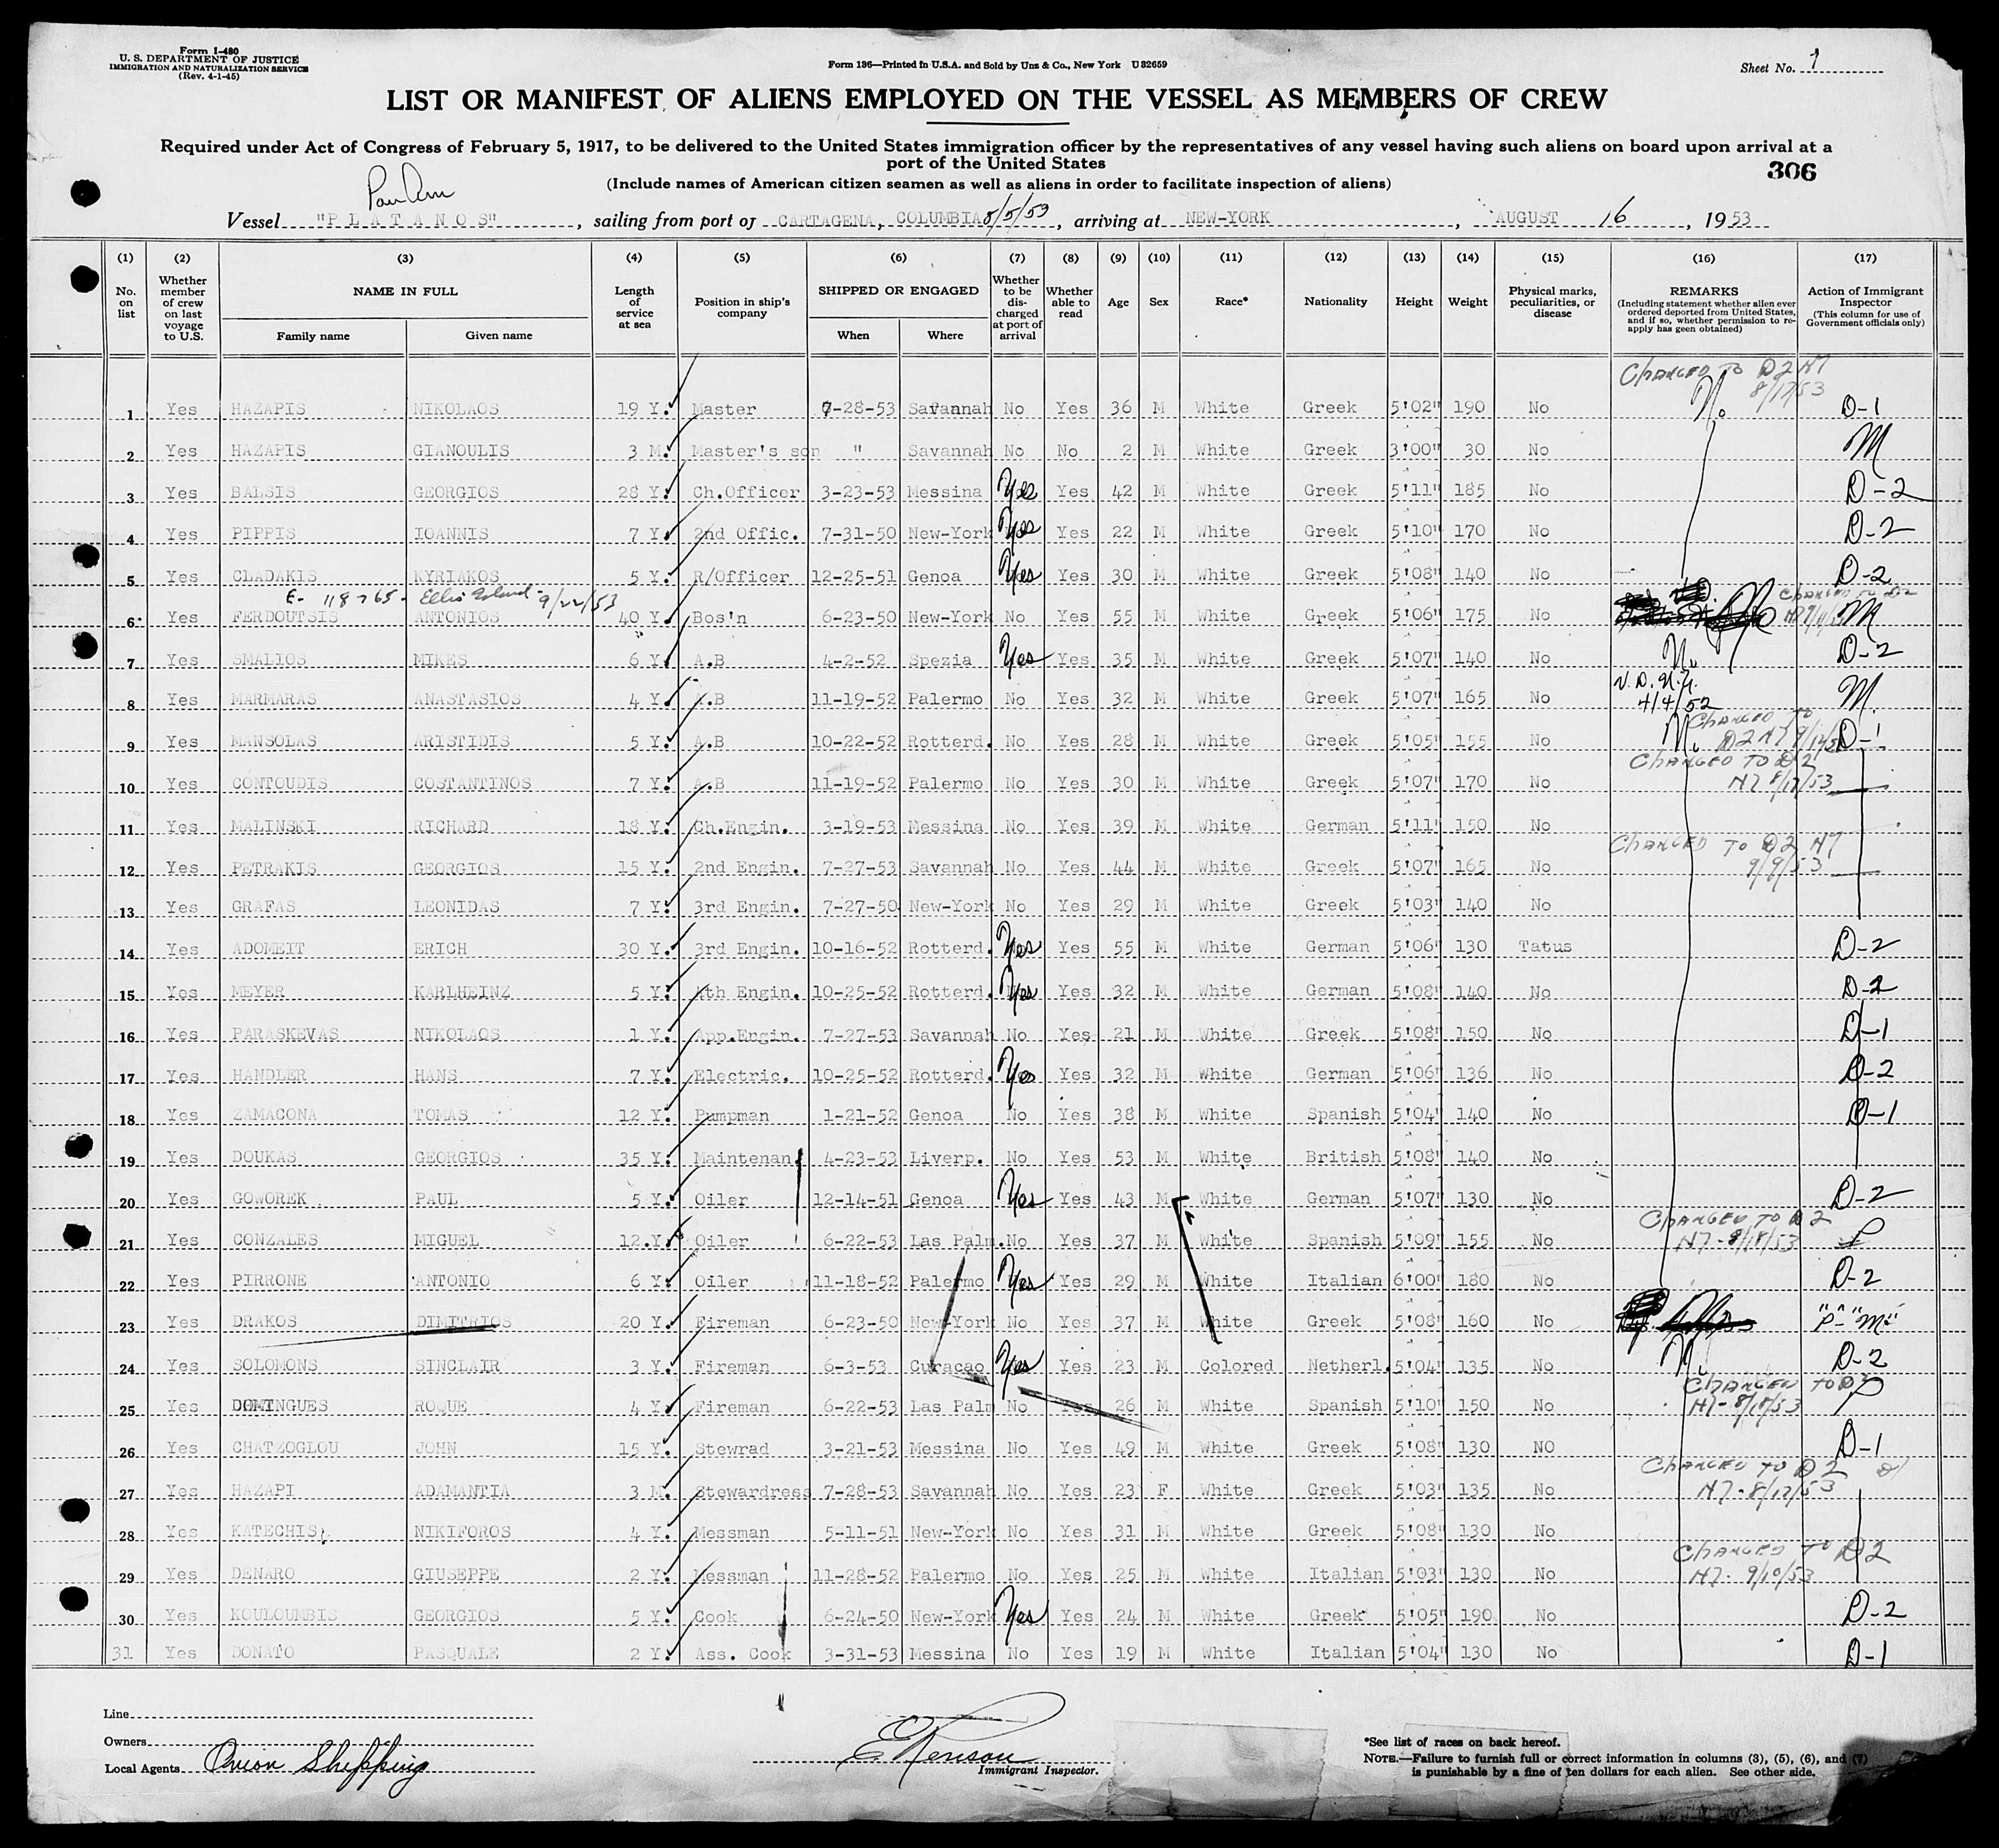 Form I-480
U. S. DEPARTMENT OF JUSTICE
IMMIGRATION AND NATURALIZATION SERVICE
(Rev. 4-1-45)
Form 136—Printed in U.S.A. and Sold by Unz & Co., New York U 82659
Sheet No. 1
LIST OR MANIFEST OF ALIENS EMPLOYED ON THE VESSEL AS MEMBERS OF CREW
Required under Act of Congress of February 5, 1917, to be delivered to the United States immigration officer by the representatives of any vessel having such aliens on board upon arrival at a
port of the United States
306
(Include names of American citizen seamen as well as aliens in order to facilitate inspection of aliens)
Vessel "P L A T A N O S", sailing from port of CARTAGENA, COLUMBIA, arriving at NEW-YORK, AUGUST 16, 1953
(1) (2) (3) (4) (5) (6) (7) (8) (9) (10) (11) (12) (13) (14) (15) (16) (17)
No. on list
Whether member of crew on last voyage to U.S.
NAME IN FULL
Family name Given name
Length of service at sea
Position in ship's company
SHIPPED OR ENGAGED
When Where
Whether to be discharged at port of arrival
Whether able to read
Age Sex Race* Nationality Height Weight
Physical marks, peculiarities, or disease
REMARKS
(Including statement whether alien ever ordered deported from United States, and if so, whether permission to re-apply has geen obtained)
Action of Immigrant Inspector
(This column for use of Government officials only)
CHANGED TO D2 N7 8/17/53
1 Yes HAZAPIS NIKOLAOS 19 Y. Master 7-28-53 Savannah No Yes 36 M White Greek 5'02" 190 No No D-1
2 Yes HAZAPIS GIANOULIS 3 M. Master's son " Savannah No No 2 M White Greek 3'00" 30 No M
3 Yes BALSIS GEORGIOS 28 Y. Ch.Officer 3-23-53 Messina Yes Yes 42 M White Greek 5'11" 185 No D-2
4 Yes PIPPIS IOANNIS 7 Y. 2nd Offic. 7-31-50 New-York Yes Yes 22 M White Greek 5'10" 170 No D-2
5 Yes CLADAKIS KYRIAKOS 5 Y. R/Officer 12-25-51 Genoa Yes Yes 30 M White Greek 5'08" 140 No D-2
E- 118765- Ellis Island- 9/22/53
6 Yes FERDOUTSIS ANTONIOS 40 Y. Bos'n 6-23-50 New-York No Yes 55 M White Greek 5'06" 175 No M
7 Yes SMALIOS MIKES 6 Y. A.B 4-2-52 Spezia Yes Yes 35 M White Greek 5'07" 140 No No D-2
8 Yes MARMARAS ANASTASIOS 4 Y. A.B 11-19-52 Palermo No Yes 32 M White Greek 5'07" 165 No V.D. N.Y. 4/4/52 M
9 Yes MANSOLAS ARISTIDIS 5 Y. A.B 10-22-52 Rotterd. No Yes 28 M White Greek 5'05" 155 No No CHANGED TO D2 N7 D-1
CHANGED TO D2 N7 8/17/53
10 Yes CONTOUDIS COSTANTINOS 7 Y. A.B 11-19-52 Palermo No Yes 30 M White Greek 5'07" 170 No
11 Yes MALINSKI RICHARD 18 Y. Ch.Engin. 3-19-53 Messina No Yes 39 M White German 5'11" 150 No
CHANGED TO D2 N7 9/9/53
12 Yes PETRAKIS GEORGIOS 15 Y. 2nd Engin. 7-27-53 Savannah No Yes 44 M White Greek 5'07" 165 No
13 Yes GRAFAS LEONIDAS 7 Y. 3rd Engin. 7-27-50 New-York No Yes 29 M White Greek 5'03" 140 No
14 Yes ADOMEIT ERICH 30 Y. 3rd Engin. 10-16-52 Rotterd. Yes Yes 55 M White German 5'06" 130 Tatus D-2
15 Yes MEYER KARLHEINZ 5 Y. 4th Engin. 10-25-52 Rotterd. Yes Yes 32 M White German 5'08" 140 No D-2
16 Yes PARASKEVAS NIKOLAOS 1 Y. App.Engin. 7-27-53 Savannah No Yes 21 M White Greek 5'08" 150 No D-1
17 Yes HANDLER HANS 7 Y. Electric. 10-25-52 Rotterd. Yes Yes 32 M White German 5'06" 136 No D-2
18 Yes ZAMACONA TOMAS 12 Y. Pumpman 1-21-52 Genoa No Yes 38 M White Spanish 5'04" 140 No D-1
19 Yes DOUKAS GEORGIOS 35 Y. Maintenan. 4-23-53 Liverp. No Yes 53 M White British 5'08" 140 No
20 Yes GOWOREK PAUL 5 Y. Oiler 12-14-51 Genoa Yes Yes 43 M White German 5'07" 130 No D-2
CHANGED TO D2 N7- 8/18/53
21 Yes CONZALES MIGUEL 12.Y. Oiler 6-22-53 Las Palm. No Yes 37 M White Spanish 5'09" 155 No
22 Yes PIRRONE ANTONIO 6 Y. Oiler 11-18-52 Palermo Yes Yes 29 M White Italian 6'00" 180 No D-2
23 Yes DRAKOS DIMITRIOS 20 Y. Fireman 6-23-50 New-York No Yes 37 M White Greek 5'08" 160 No "P"-"M"
24 Yes SOLOMONS SINCLAIR 3 Y. Fireman 6-3-53 Curacao Yes Yes 23 M Colored Netherl. 5'04" 135 No No D-2
CHANGED TO D2 N7- 8/18/53
25 Yes DOMINGUES ROQUE 4 Y. Fireman 6-22-53 Las Palm No Yes 26 M White Spanish 5'10" 150 No
26 Yes CHATZOGLOU JOHN 15 Y. Stewrad 3-21-53 Messina No Yes 49 M White Greek 5'08" 130 NO D-1
CHANGED TO D2 N7- 8/17/53
27 Yes HAZAPI ADAMANTIA 3 M. Stewardress 7-28-53 Savannah No Yes 23 F White Greek 5'03" 135 No
28 Yes KATECHIS NIKIFOROS 4 Y. Messman 5-11-51 New-York No Yes 31 M White Greek 5'08" 130 No
CHANGED TO D2 N7- 9/10/53
29 Yes DENARO GIUSEPPE 2 Y. Messman 11-28-52 Palermo No Yes 25 M White Italian 5'03" 130 No
30 Yes KOULOUMBIS GEORGIOS 5 Y. Cook 6-24-50 New-York Yes Yes 24 M White Greek 5'05" 190 No D-2
31 Yes DONATO PASQUALE 2 Y. Ass. Cook 3-31-53 Messina No Yes 19 M White Italian 5'04" 130 No D-1
Line
Owners
Local Agents Orion Shipping
Immigrant Inspector.
*See list of races on back hereof.
NOTE.—Failure to furnish full or correct information in columns (3), (5), (6), and (7)
is punishable by a fine of ten dollars for each alien. See other side.